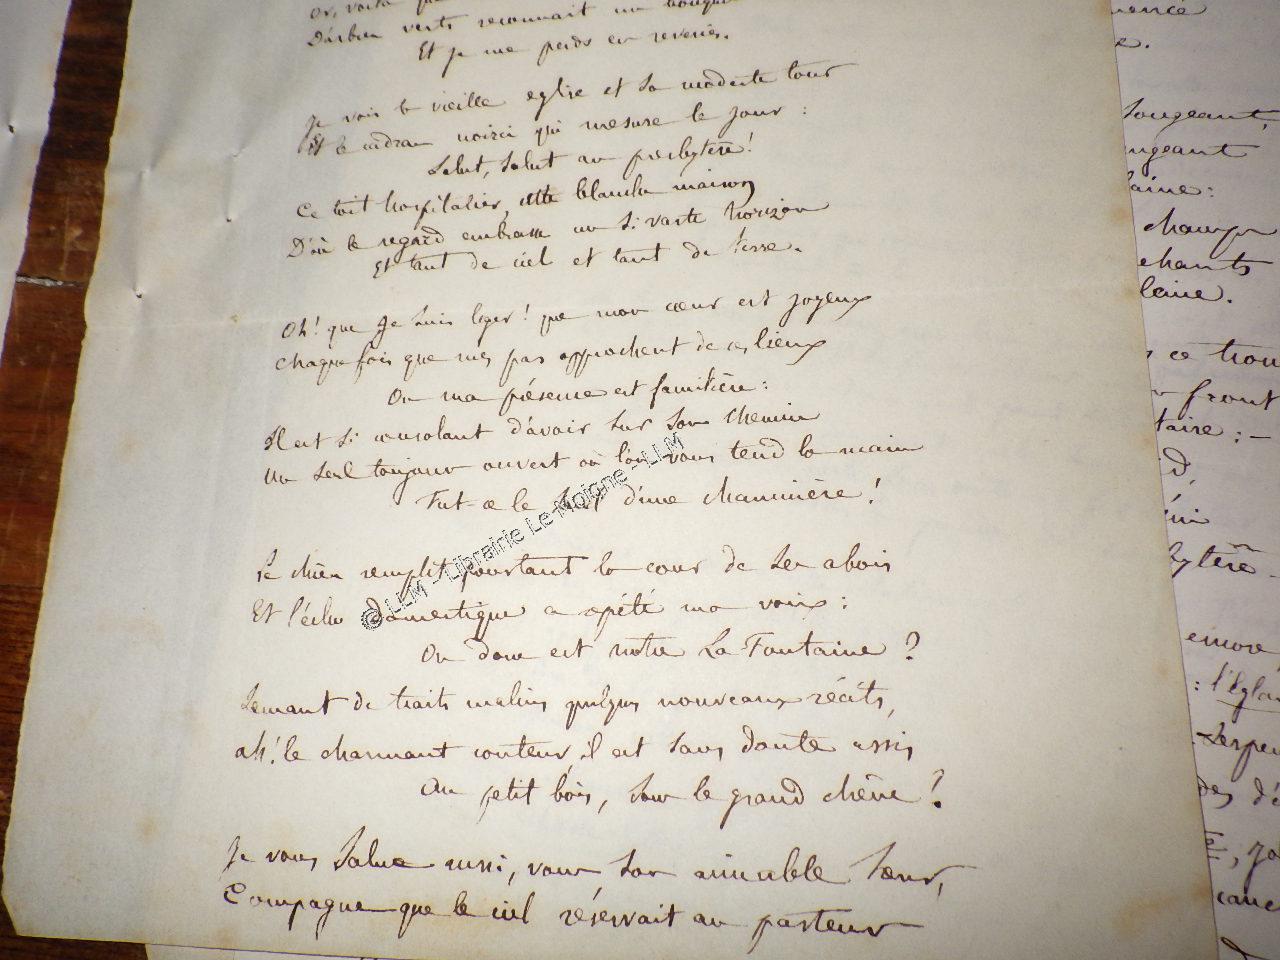 D'arbres verts reconnait un bouquet
Et je me perds en reveries.
Je vois la vieille eglise et sa modeste tour
Et le cadran noirci qui mesure le jour :
Salut, salut au presbytère !
Ce toit hospitalier, cette blanche maison
D'où le regard embrasse un si vaste horizon
Et tant de ciel et tant de terre.
Oh ! que je suis leger ! que mon cœur est joyeux
Chaque fois que mes pas approchent de ces lieux
Où ma présence est familière :
Il est si consolant d'avoir sur son chemin
Un seuil toujours ouvert où l'on vous tend la main
Fut-ce le seuil d'une chaumière !
Le chien remplit pourtant la cour de ses abois
Et l'écho domestique a répété ma voix :
Où donc est notre La Fontaine ?
Semant de traits malins quelques nouveaux récits,
Ah ! le charmant conteur, il est sans doute assis
Au petit bois, sous le grand chêne ?
Je vous salue aussi, vous son aimable sœur,
Compagne que le ciel réservait au pasteur
© LLM - Librairie Le Moigne - LLM
songeant,
laine :
champs
chants
laine.
ce
front
taire : -
encore